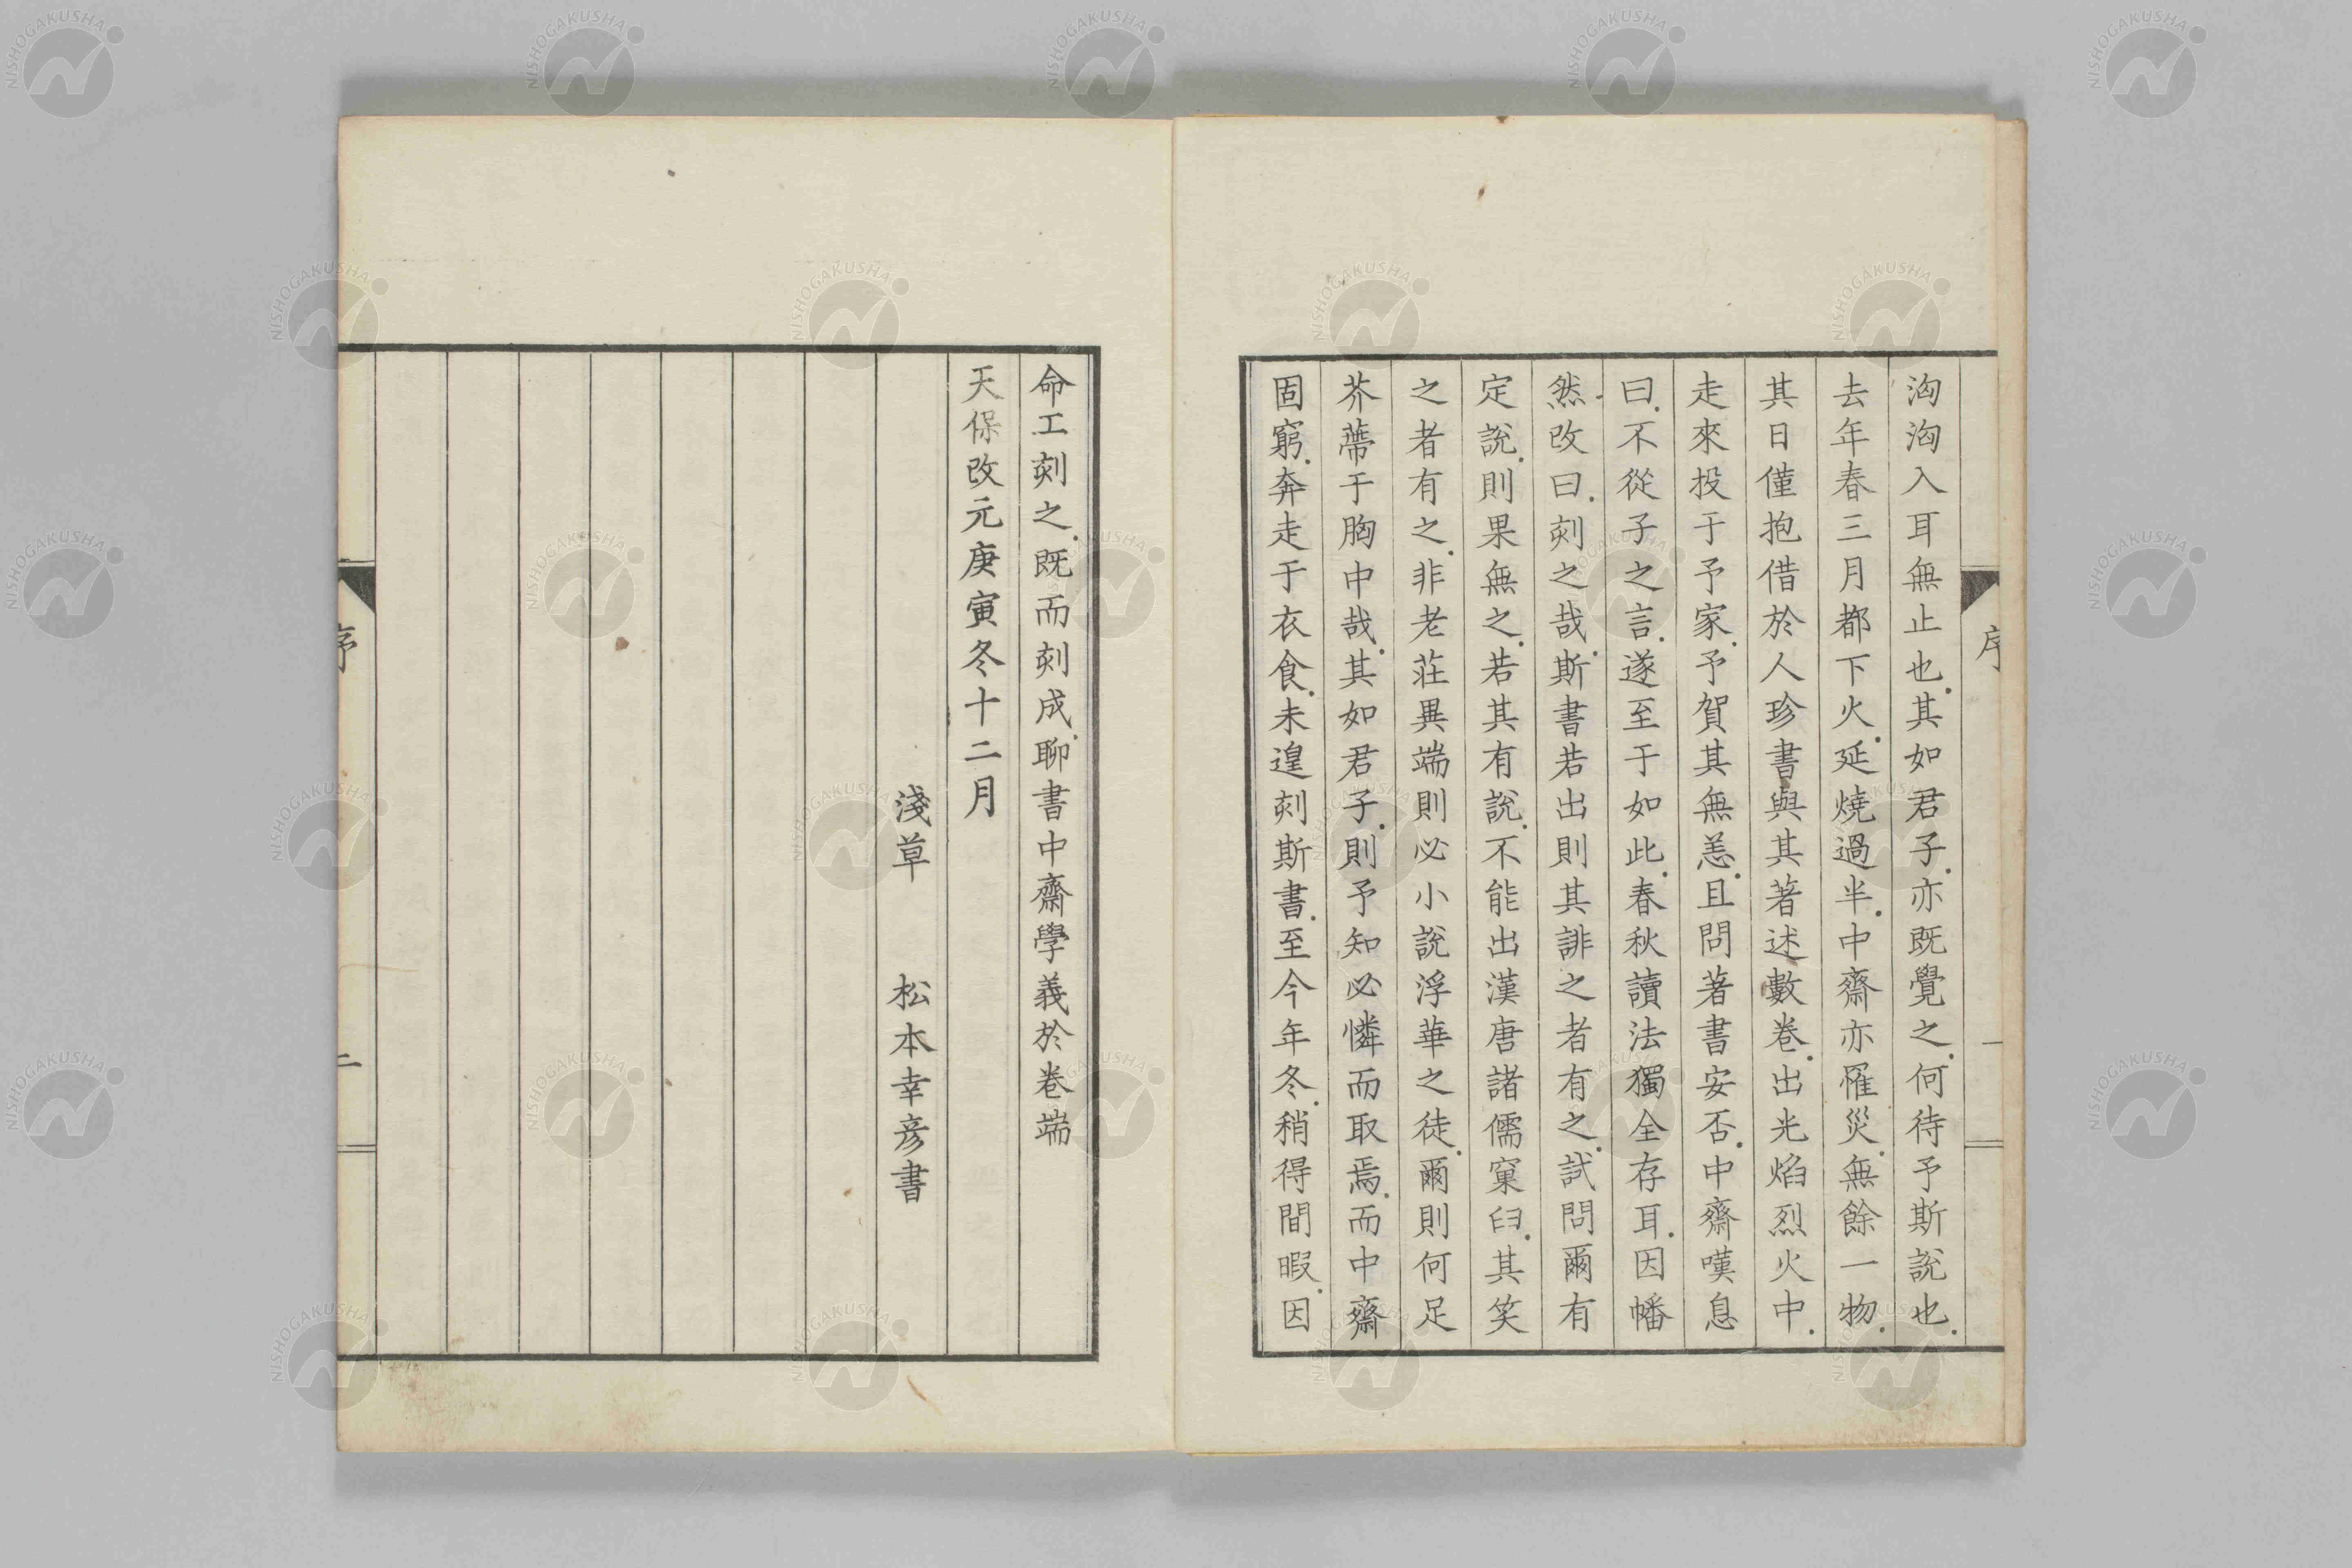 洶洶入耳無止也.其如君子.亦既覺之.何待予斯說也.
去年春三月都下火.延燒過半.中齋亦罹災.無餘一物.
其日僅抱借於人珍書與其著述數卷.出光焰烈火中.
走來投于予家.予賀其無恙.且問著書安否.中齋嘆息
曰.不從子之言.遂至于如此.春秋讀法獨全存耳.因幡
然改曰.刻之哉.斯書若出則其誹之者有之.試問爾有
定說.則果無之.若其有說.不能出漢唐諸儒窠臼.其笑
之者有之.非老莊異端則必小說浮華之徒.爾則何足
芥蔕于胸中哉.其如君子.則予知必憐而取焉.而中齋
固窮.奔走于衣食.未遑刻斯書.至今年冬.稍得間暇.因
序
一
命工刻之.既而刻成.聊書中齋學義於卷端
天保改元庚寅冬十二月
淺草　松本幸彥書
序
二
NISHOGAKUSHA